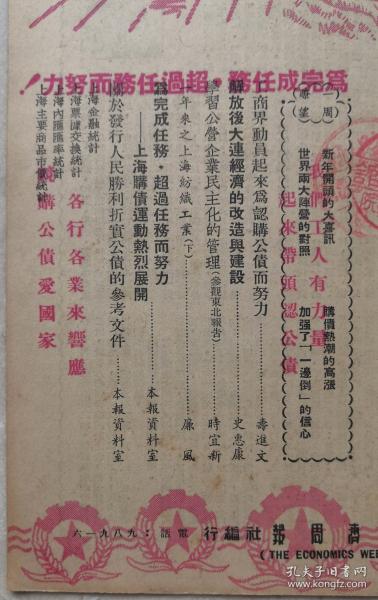 為完成任務，超過任務而努力！
一周
瞭望
新年開頭的大喜訊
購債熱潮的高漲
世界兩大陣營的對照
加强了「一邊倒」的信心
們工人有力量
起來帶頭認公債
工商界動員起來為認購公債而努力……壽進文
解放後大連經濟的改造與建設……史惠康
學習公營企業民主化的管理（參觀東北報告）……時宜新
一年來之上海紡織工業（下）……廉風
為完成任務·超過任務而努力
——上海購債運動熱烈展開……本報資料室
關於發行人民勝利折實公債的參考文件……本報資料室
上海金融統計
上海票據交換統計
上海內匯匯率統計
上海主要商品市價統計
各行各業來響應
購公債愛國家
濟周報社編行 電話：九八九一六
(THE ECONOMICS WEE
孔夫子旧书网